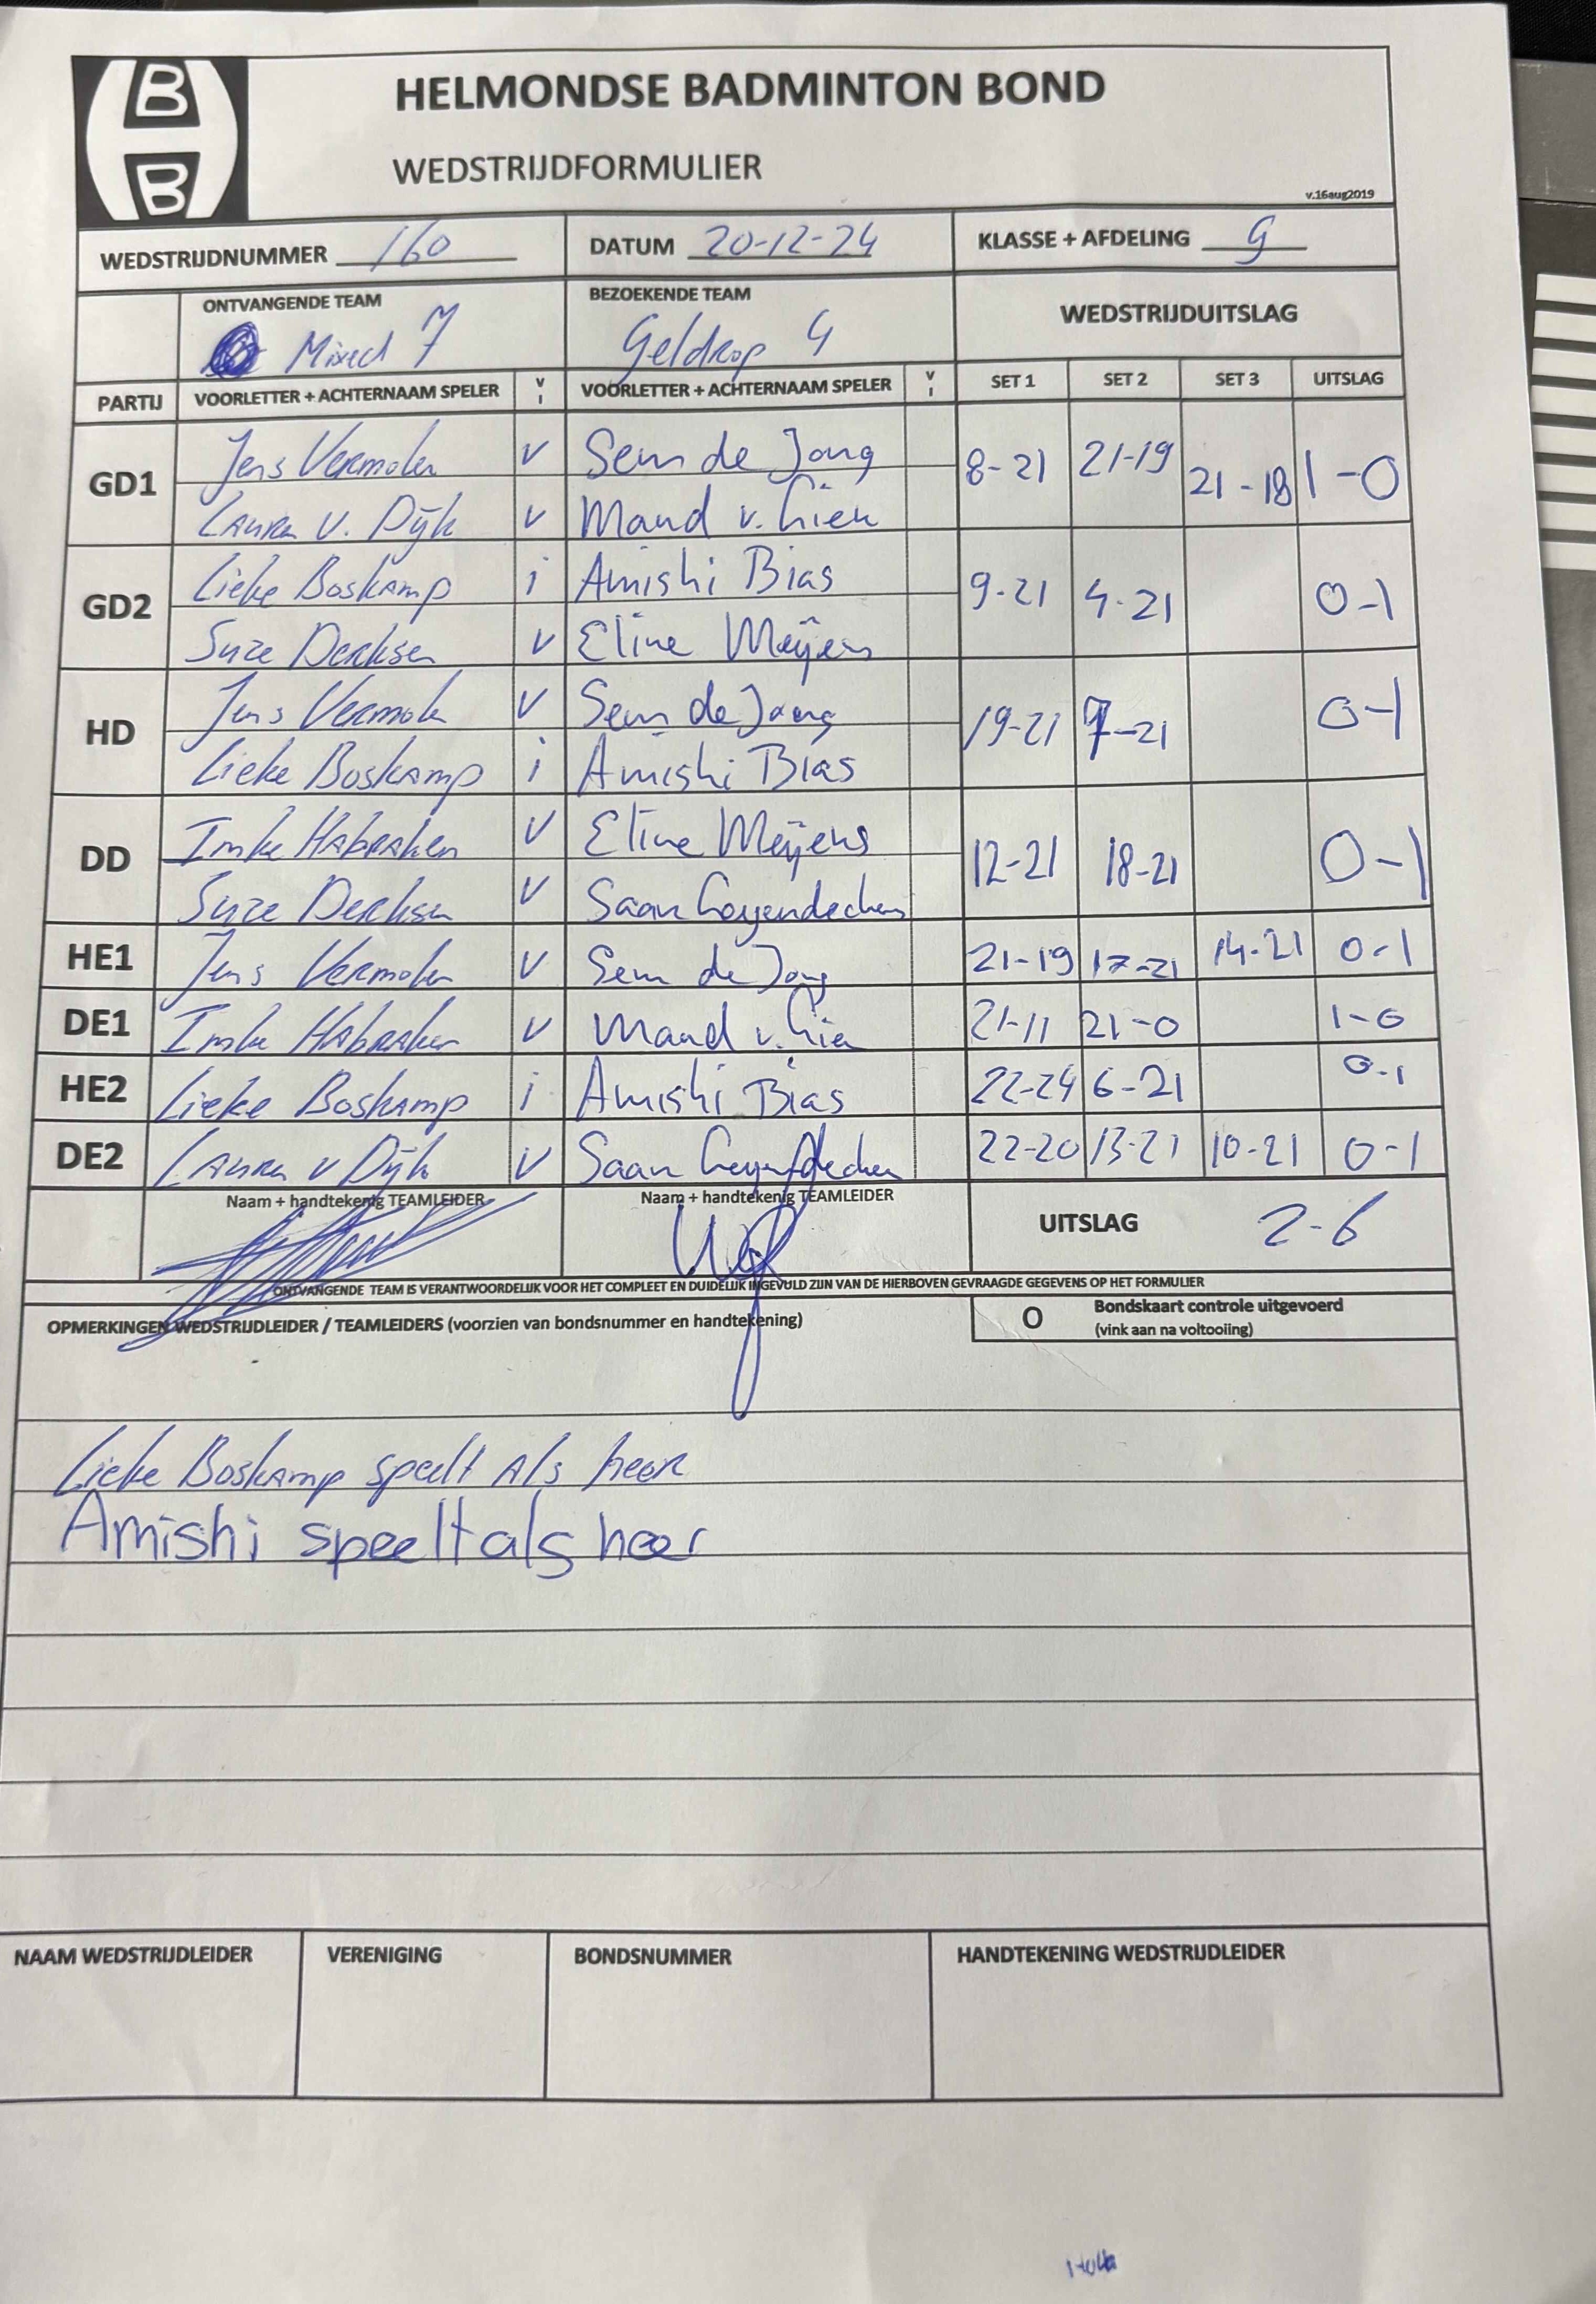 B
B
HELMONDSE BADMINTON BOND
WEDSTRIJDFORMULIER
v.16aug2019
WEDSTRIJDNUMMER 160 DATUM 20-12-24 KLASSE + AFDELING 9
ONTVANGENDE TEAM BEZOEKENDE TEAM WEDSTRIJDUITSLAG
Mixed 7 Geldrop 4
PARTIJ VOORLETTER + ACHTERNAAM SPELER V I VOORLETTER + ACHTERNAAM SPELER V I SET 1 SET 2 SET 3 UITSLAG
GD1 Jens Vermolen v Sem de Jong 8-21 21-19 21-18 1-0
Laura v. Dijk v Maud v.
GD2 Lieke Boskamp i Amishi Bias 9-21 4-21 0-1
Suze Derksen v Eline Meijers
HD Jens Vermolen v Sem de Jong 19-21 7-21 0-1
Lieke Boskamp i Amishi Bias
DD Imke Habraken v Eline Meijers 12-21 18-21 0-1
Suze Derksen v Saan
HE1 Jens Vermolen v Sem de Jong 21-19 17-21 14-21 0-1
DE1 Imke Habraken v Maud v. 21-11 21-0 1-0
HE2 Lieke Boskamp i Amishi Bias 22-24 6-21 0-1
DE2 Laura v Dijk v Saan 22-20 13-21 10-21 0-1
Naam + handtekenig TEAMLEIDER Naam + handtekenig TEAMLEIDER UITSLAG 2-6
ONTVANGENDE TEAM IS VERANTWOORDELIJK VOOR HET COMPLEET EN DUIDELIJK INGEVULD ZIJN VAN DE HIERBOVEN GEVRAAGDE GEGEVENS OP HET FORMULIER
OPMERKINGEN WEDSTRIJDLEIDER / TEAMLEIDERS (voorzien van bondsnummer en handtekening) O Bondskaart controle uitgevoerd
(vink aan na voltooiing)
Lieke Boskamp speelt als heer
Amishi speelt als heer
NAAM WEDSTRIJDLEIDER VERENIGING BONDSNUMMER HANDTEKENING WEDSTRIJDLEIDER